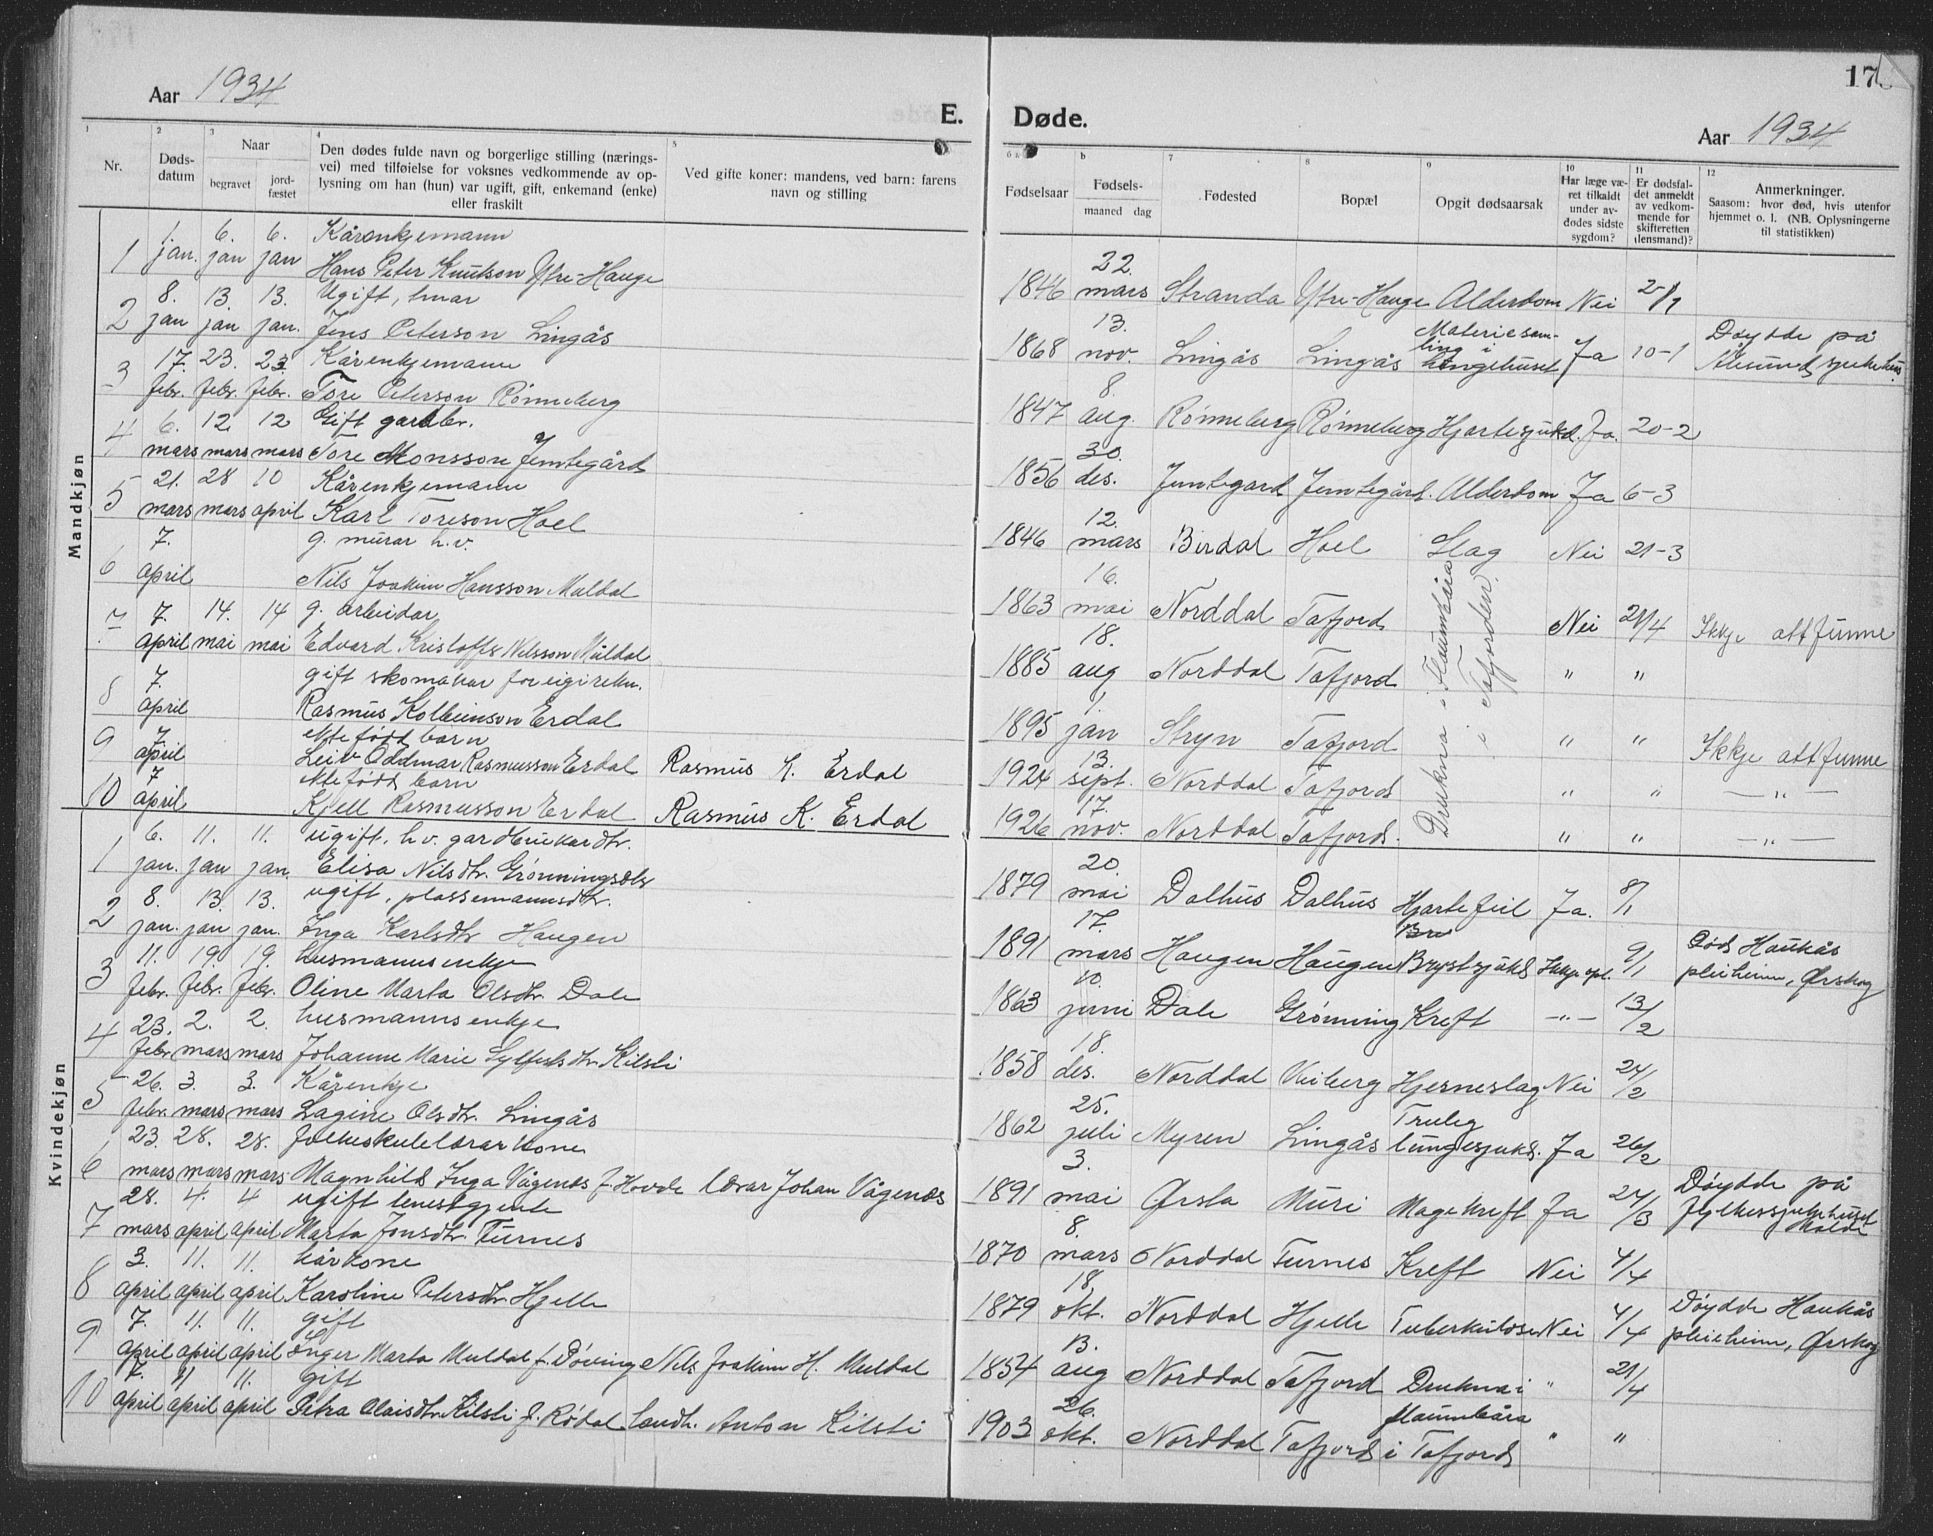 Aar 1934
E.
Døde.
Aar 1934
17
1
2
3
4
5
Nr.
Døds-
datum
Naar
begravet
jord-
fæstet
Den dødes fulde navn og borgerlige stilling (nærings-
vei) med tilføielse for voksnes vedkommende av op-
lysning om han (hun) var ugift, gift, enkemand (enke)
eller fraskilt
Ved gifte koner: mandens, ved barn: farens
navn og stilling
6 a
b
7
8
9
10
11
12
Fødselsaar
Fødsels-
maaned dag
Fødested
Bopæl
Opgit dødsaarsak
Har læge væ-
ret tilkaldt
under av-
dødes sidste
sygdom?
Er dødsfal-
det anmeldt
av vedkom-
mende for
skifteretten
(lensmand)?
Anmerkninger.
Saasom: hvor død, hvis utenfor
hjemmet o. l. (NB. Oplysningerne
til statistikken)
Mandkjøn
1. 6. 6. Kårenkjemann
1 jan. jan jan Hans Peter Knutson Ytre-Hauge
22.
1846 mars Stranda Ytre-Hauge Alderdom Nei 2/1
8. 13. 13. Ugift,
2 jan jan jan. Jens Peterson Lingås
13. Materiesam- Døydde på
1868 nov. Lingås Lingås ling i hengehuset Ja 10-1 Ålesund sjukehus
17. 23. 23. Kårenkjemann
3 febr. febr. febr. Tore Peterson Rønneberg
8.
1847 aug. Rønneberg Rønneberg Hjartesjukd. Ja. 20-2
6. 12. 12 Gift gardbr.
4 mars mars mars Tore Monsson Jemtegård
30.
1856 des. Jemtegard Jemtegård. Alderdom Ja 6-3
21. 28 10 Kårenkjemann
5 mars mars april Karl Toreson Hoel
12.
1846 mars Birdal Hoel Slag Nei 21-3
7. g. murar h.v.
6 april Nils Joakim Hansson Muldal
16.
1863 mai Norddal Tafjord Nei 21/4 Ikkje attfunne
Drukna i flaumbåra
i Tafjorden.
7. 14. 14 g. arbeidar
7 april mai mai Edvard Kristoffer Nilsson Muldal
18.
1885 aug Norddal Tafjord " "
7. gift skomakar for eigi rekn.
8 april Rasmus Kolbeinson Erdal
1
1895 jan Stryn Tafjord " " Ikkje attfunne
7 ektefødt barn
9 april Leiv Oddmar Rasmusson Erdal Rasmus K. Erdal
13.
1924 sept. Norddal Tafjord " " — " —
7 ektefødt barn
10 april Kjell Rasmusson Erdal Rasmus K. Erdal
17.
1926 nov. Norddal Tafjord. " " — " —
Kvindekjøn
6. 11. 11. ugift, h.v. gardbrukardtr.
1 jan. jan jan. Elisa Nilsdtr. Grønningsæter
20.
1879 mai Dalhus Dalhus Hjartefeil Ja. 8/1
8. 13. 13. ugift, plassemannsdtr.
2 jan. jan jan. Inga Karlsdtr Haugen
17. Død Haukås
1891 mars Haugen Haugen Brystsjukd Ikkje opl. 9/1 pleieheim, Ørskog
11. 19. 19. husmannsenkje
3 febr. febr. febr. Oline Marta Olsdtr. Dale
10.
1863 juni Dale Grønning Kreft — " — 13/2
23. 2. 2. husmannsenkje
4 febr mars mars Johanne Marie Sylfestsdtr Kilsti
18.
1858 des. Norddal Viiberg Hjerneslag Nei 24/2
26. 3. 3. Kårenkje
5 febr. mars mars Lagine Olsdtr. Lingås
25. Truleg
1862 juli Myren Lingås lungesjukd. Ja 26/2
23. 28. 28. folkeskulelærarkone
6 mars mars mars Magnhild Inga Vågenes f. Hovde lærar Johan Vågenes
3. Døydde på
1891 mai Ørsta Muri Magekreft Ja 24/3 fylkessjukehuset Molde
28. 4. 4 ugift tenestgjente
7 mars april april Marta Jonsdtr. Furnes
8.
1870 mars Norddal Furnes Kreft Nei 4/4
3. 11. 11. kårkone
8 april april april Karoline Petersdtr Hjelle
18. Døydde Haukås
1879 okt. Norddal Hjelle Tuberkulose Nei 4/4 pleieheim, Ørskog
7. 11. 11. gift
9 april april april Inger Marta Muldal f. Døving Nils Joakim H. Muldal
13.
1854 aug Norddal Tafjord Drukna i " 21/4
7. 11 11. gift
10 april april april Petra Olaisdtr. Kilsti f. Rødal Landh. Anton Kilsti
26. flaumbåra
1903 okt. Norddal Tafjord i Tafjord " "